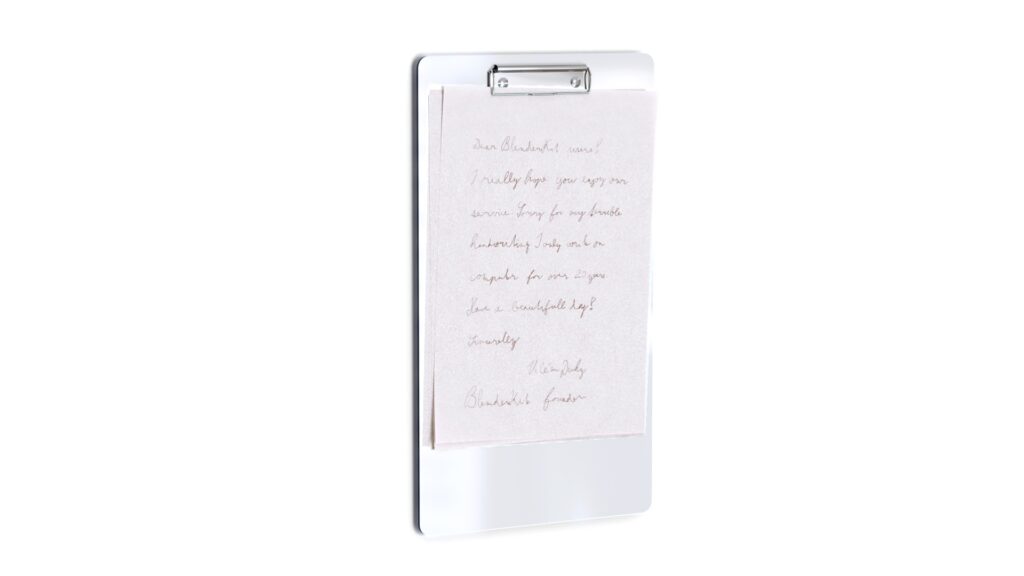 Dear BlenderKit users!
I really hope you enjoy our
service Sorry for my terrible
handwriting I only work on
computer for over 20 years
Have a beautifull day!
Sincerelly
BlenderKit founder